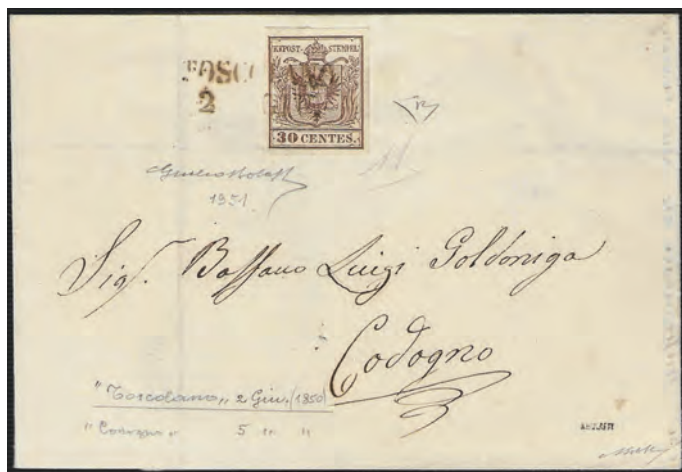 KKPOST-STEMPEL
TOSCO
2
30 CENTES.
1951.
Sig.r Bassano Luigi Goldoniga
Codogno
"Toscolano„ 2 Giu. (1850)
"Codogno„ 5 " "